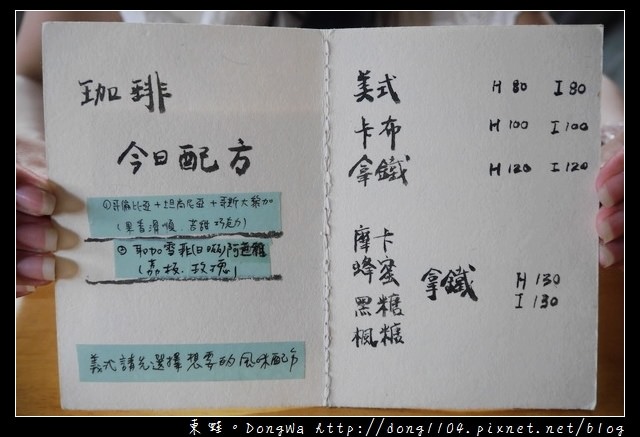 珈琲
今日配方
①哥倫比亞+坦尚尼亞+哥斯大黎加
(果香滑順、苦甜巧克力)
②耶加雪菲(日曬)阿蘿雅
(荔枝、玫瑰)
義式請先選擇想要的風味配方
美式 H 80 I 80
卡布 H 100 I 100
拿鐵 H 120 I 120
摩卡
蜂蜜
黑糖
楓糖
拿鐵 H 130
I 130
東蛙。DongWa http://dong1104.pixnet.net/blog